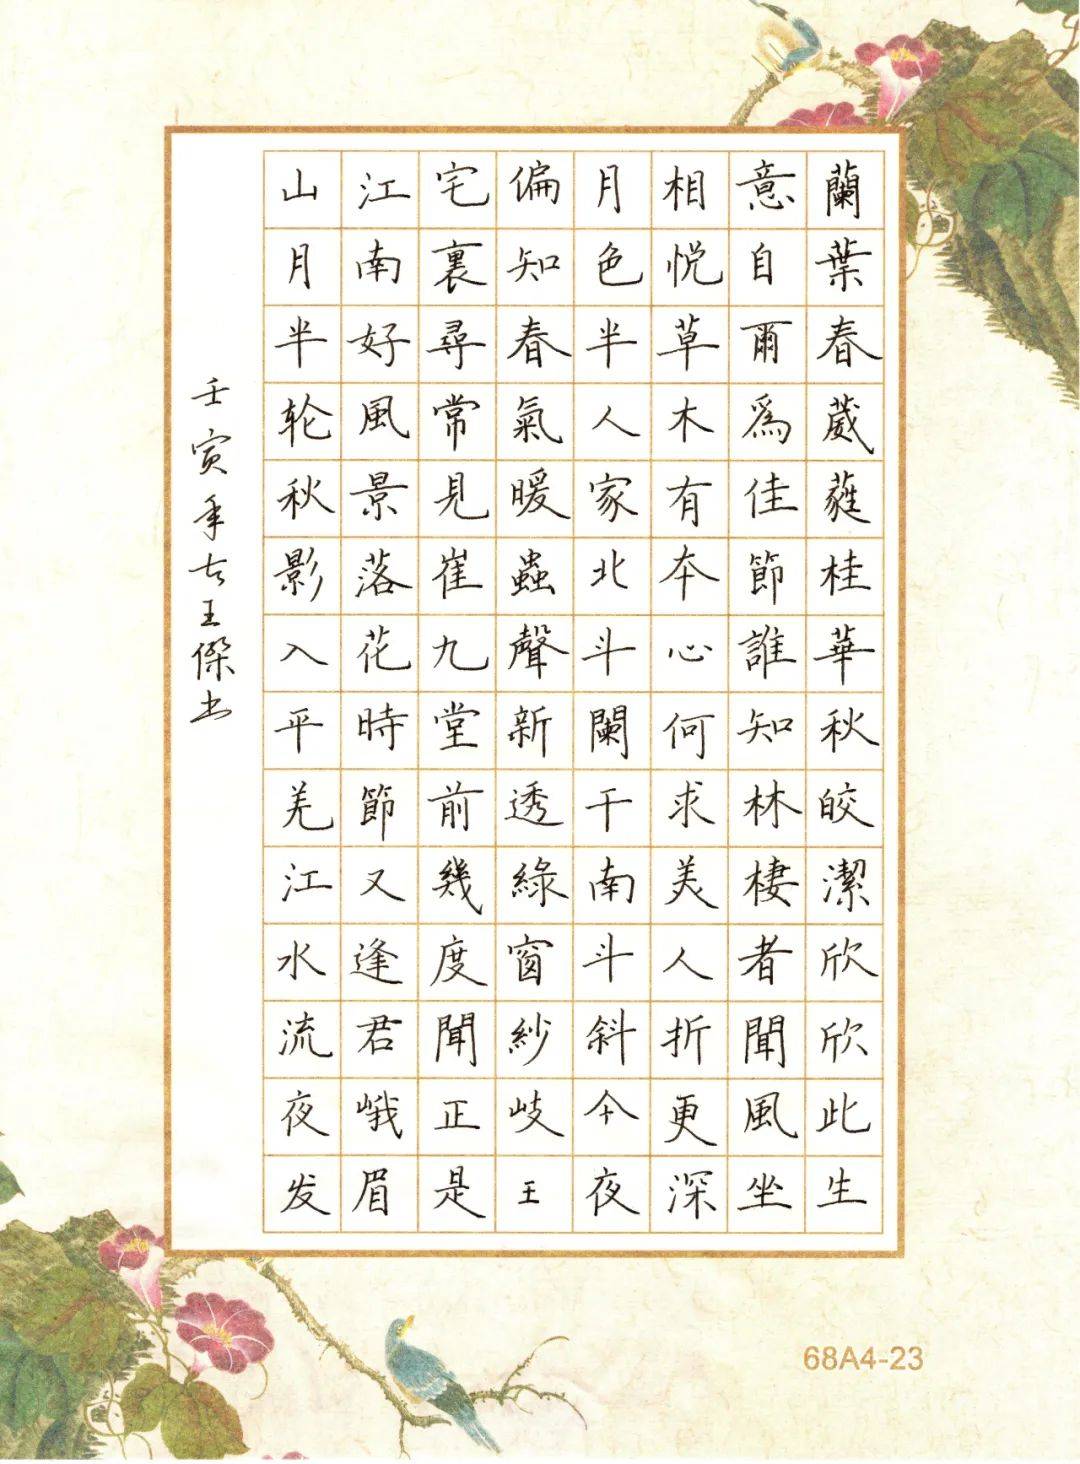 蘭葉春葳蕤桂華秋皎潔欣欣此生
意自爾爲佳節誰知林棲者聞風坐
相悦草木有本心何求美人折更深
月色半人家北斗闌干南斗斜今夜
偏知春氣暖蟲聲新透綠窗紗岐王
宅裏尋常見崔九堂前幾度聞正是
江南好風景落花時節又逢君峨眉
山月半轮秋影入平羌江水流夜发
壬寅年王傑书
68A4-23